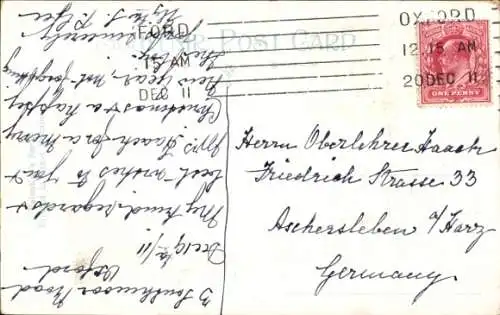 OXFORD
12.15 AM
20 DEC 11
FORD
15 AM
DEC 11
POST CARD
ONE PENNY
Herrn Oberlehrer Haack
Friedrich Strasse 33
Aschersleben a/Harz
Germany.
3 Southmoor Road
Oxford
Dec 19/11
My kind regards &
best wishes to you &
Mrs Haack for a merry
Christmas & a happy
New Year, not forgetting
the
sincerely